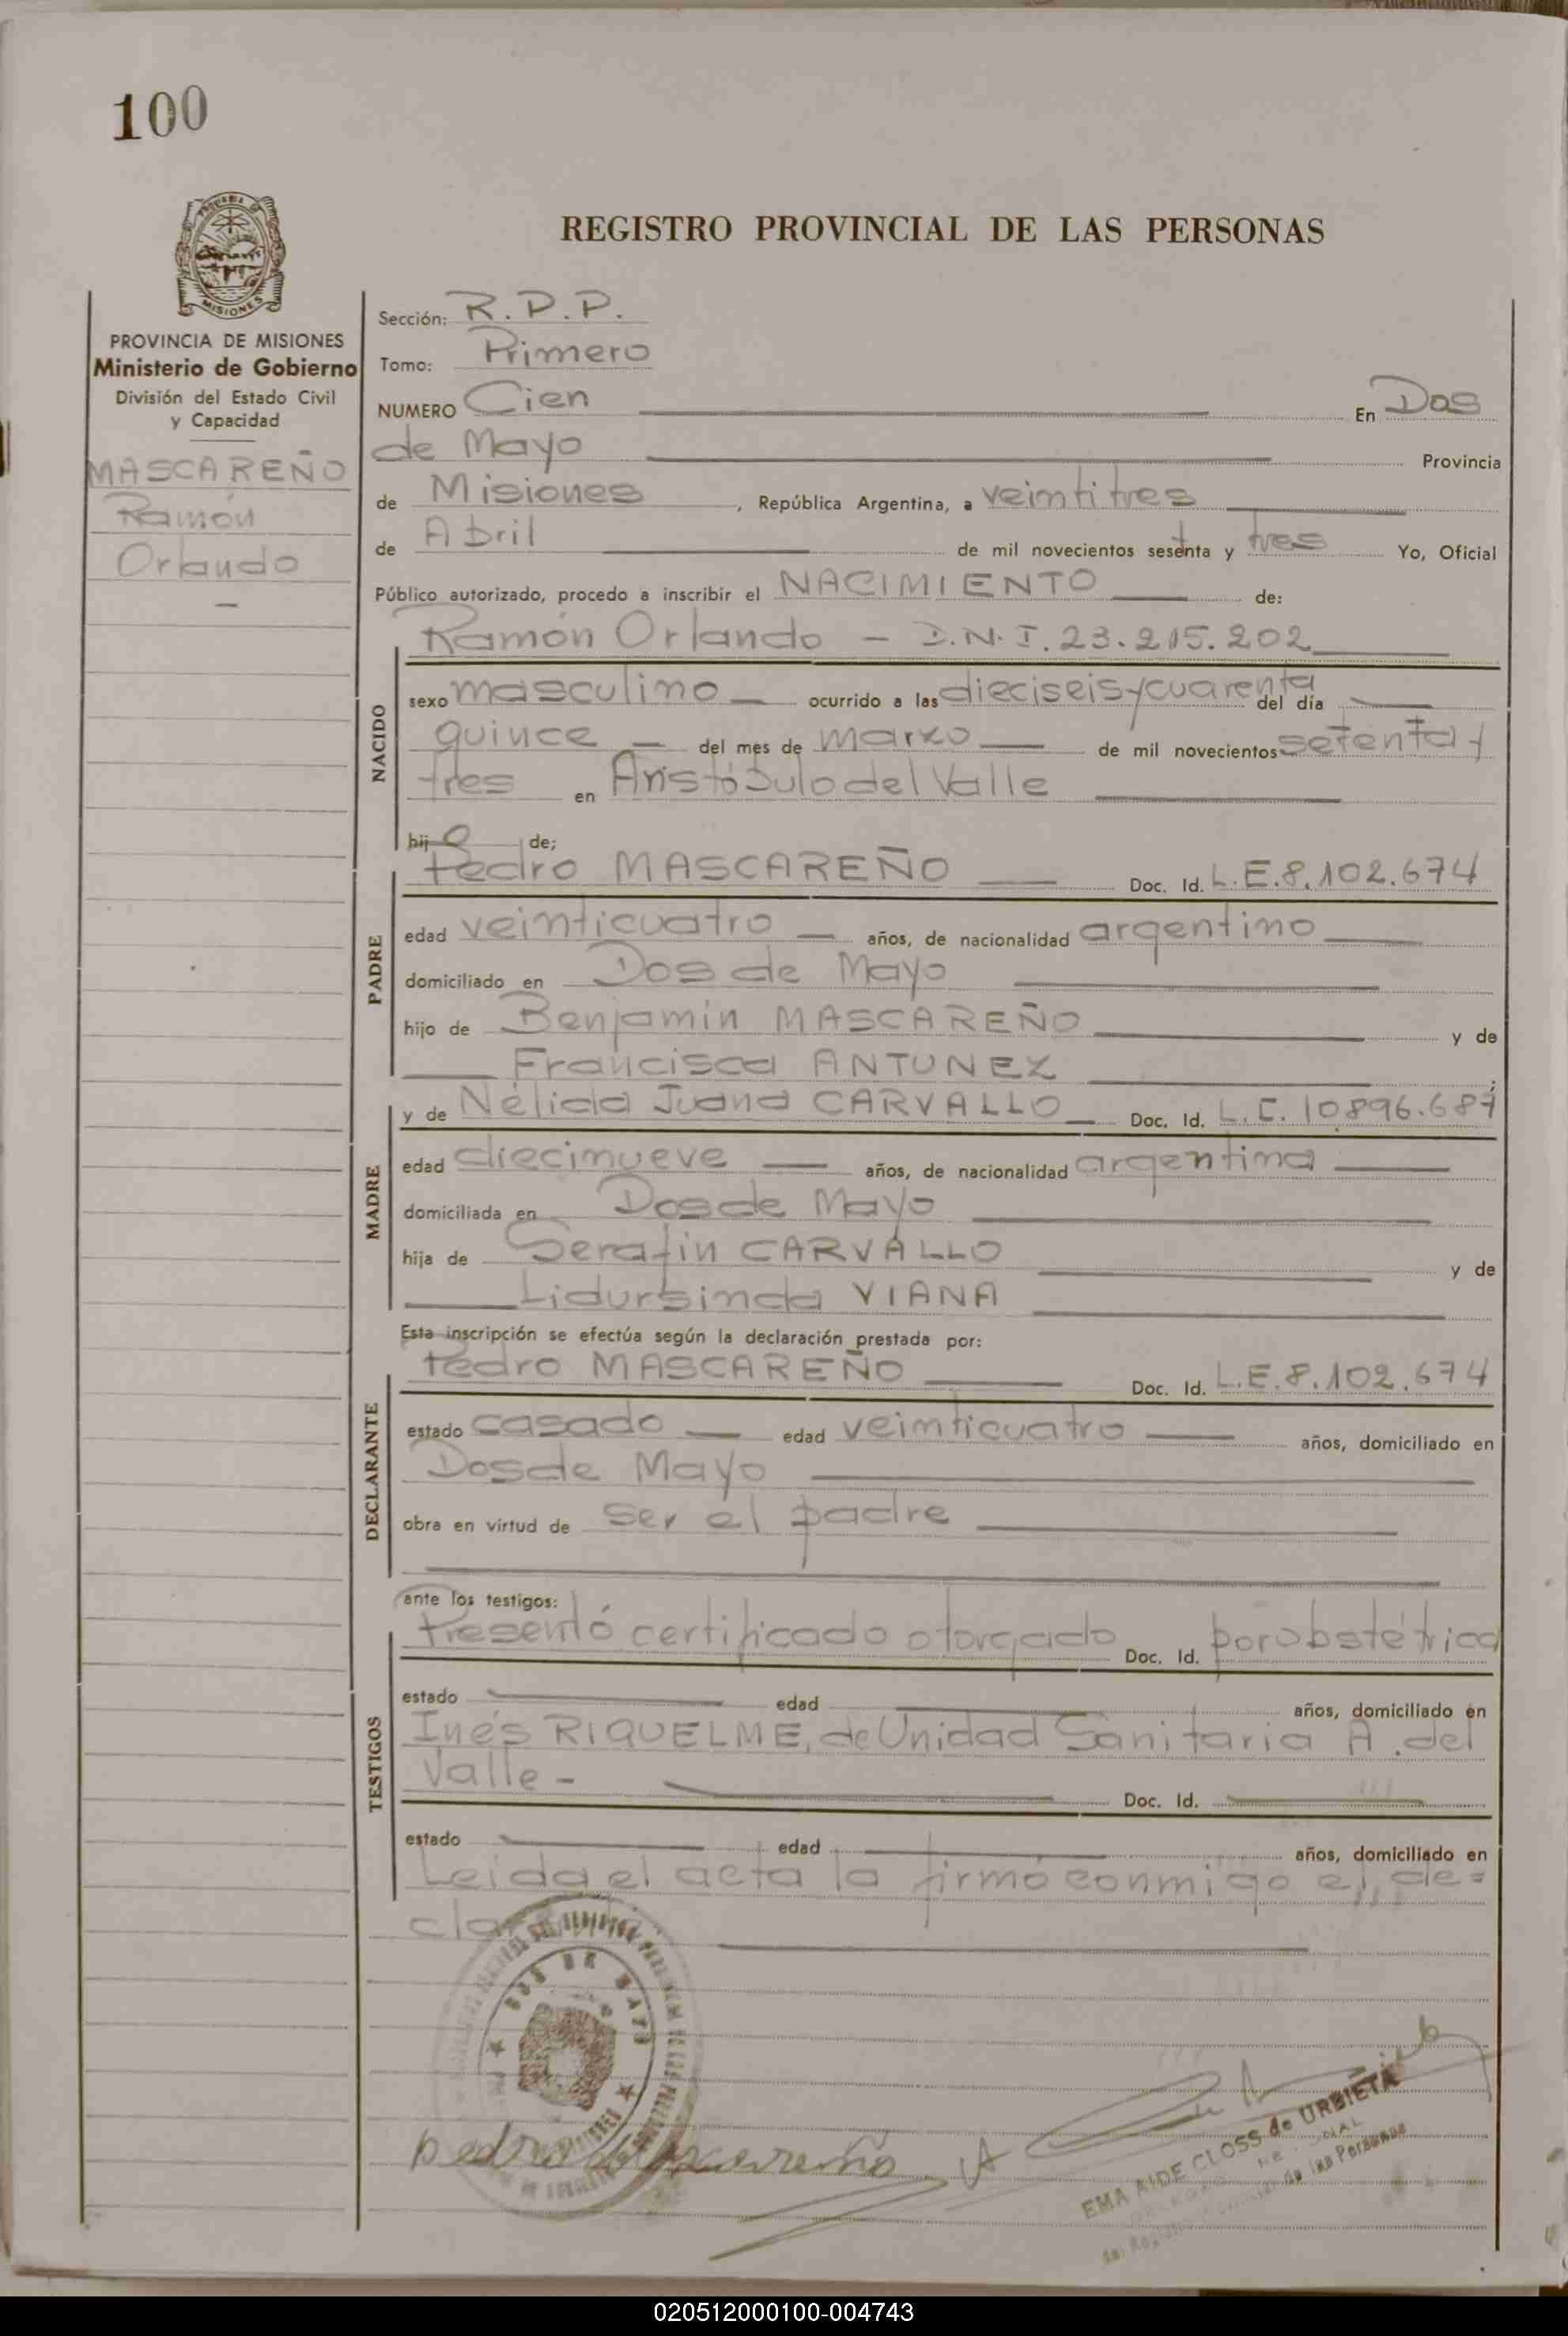 100
REGISTRO PROVINCIAL DE LAS PERSONAS
MISIONES
PROVINCIA DE MISIONES
Ministerio de Gobierno
División del Estado Civil
y Capacidad
MASCAREÑO
Ramón
Orlando
Sección: R.P.P.
Tomo: Primero
NUMERO Cien En Dos
de Mayo Provincia
de Misiones, República Argentina, a veintitres
de Abril de mil novecientos sesenta y tres Yo, Oficial
Público autorizado, procedo a inscribir el NACIMIENTO de:
Ramón Orlando - D.N.I. 23.215.202
NACIDO
sexo masculino ocurrido a las dieciseis y cuarenta del día
quince del mes de marzo de mil novecientos setenta y
tres en Aristóbulo del Valle
hijo de;
Pedro MASCAREÑO Doc. Id. L.E.8.102.674
PADRE
edad veinticuatro años, de nacionalidad argentino
domiciliado en Dos de Mayo
hijo de Benjamin MASCAREÑO y de
Francisca ANTUNEZ
y de Nélida Juana CARVALLO Doc. Id. L.C. 10.896.687
MADRE
edad diecinueve años, de nacionalidad argentina
domiciliada en Dos de Mayo
hija de Serafin CARVALLO y de
Lidursinda VIANA
Esta inscripción se efectúa según la declaración prestada por:
Pedro MASCAREÑO Doc. Id. L.E.8.102.674
DECLARANTE
estado casado edad veinticuatro años, domiciliado en
Dos de Mayo
obra en virtud de ser el padre
ante los testigos:
Presentó certificado otorgado Doc. Id. por obstétrica
TESTIGOS
estado edad años, domiciliado en
Inés RIQUELME, de Unidad Sanitaria A. del
Valle - Doc. Id.
estado edad años, domiciliado en
Leida el acta la firmó conmigo el de=
DOS DE MAYO
pedro Mascareño
EMA AIDE CLOSS de URBIETA
de las Personas
020512000100-004743